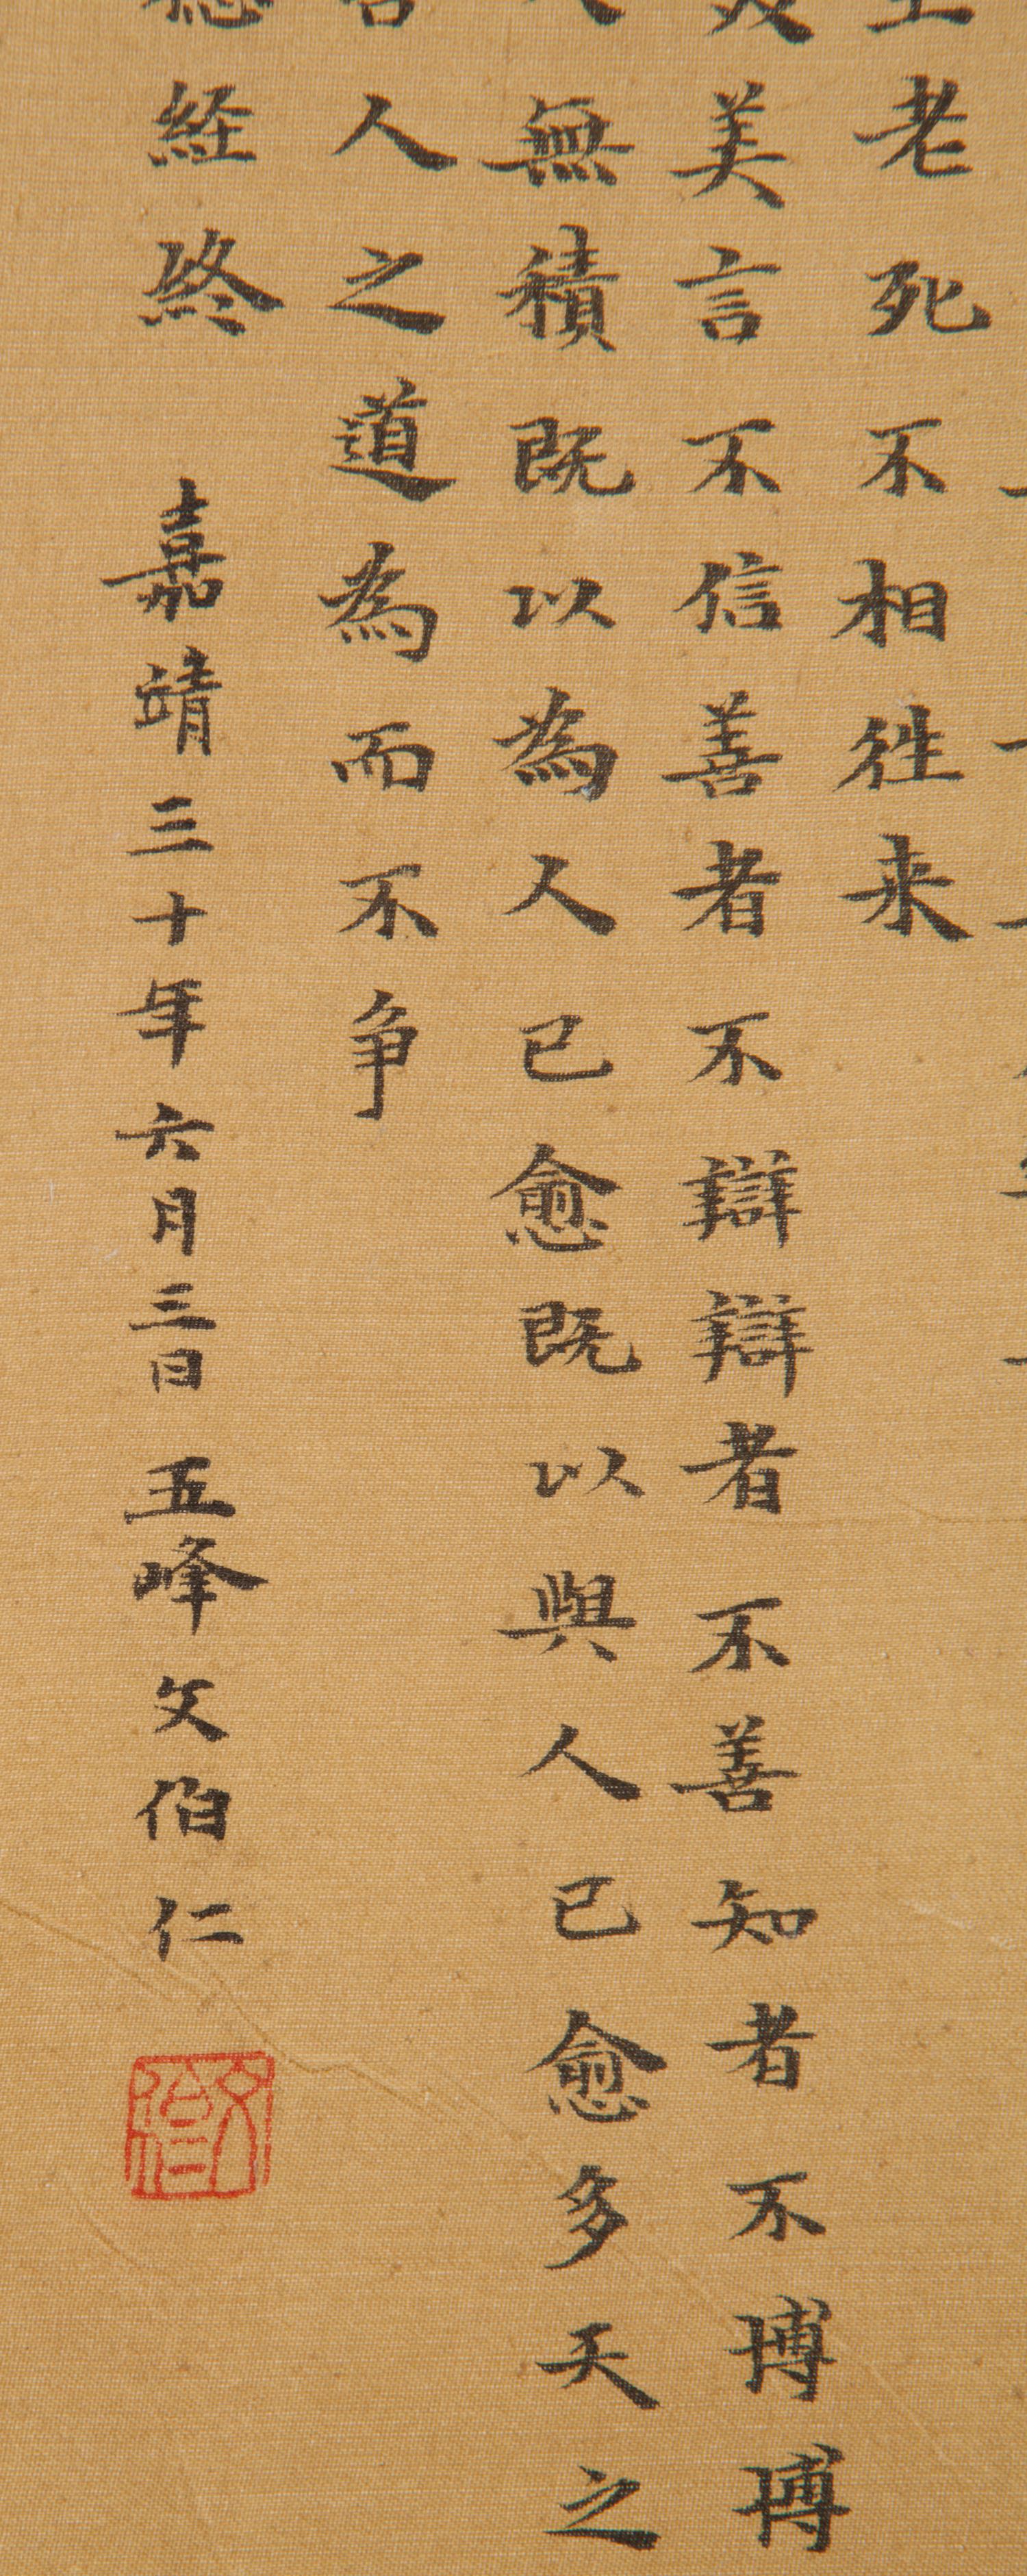 老死不相往来
美言不信善者不辯辯者不善知者不博博
無積既以為人已愈既以與人已愈多天之
人之道為而不争
経終 嘉靖三十年六月三日 五峰文伯仁
文伯仁